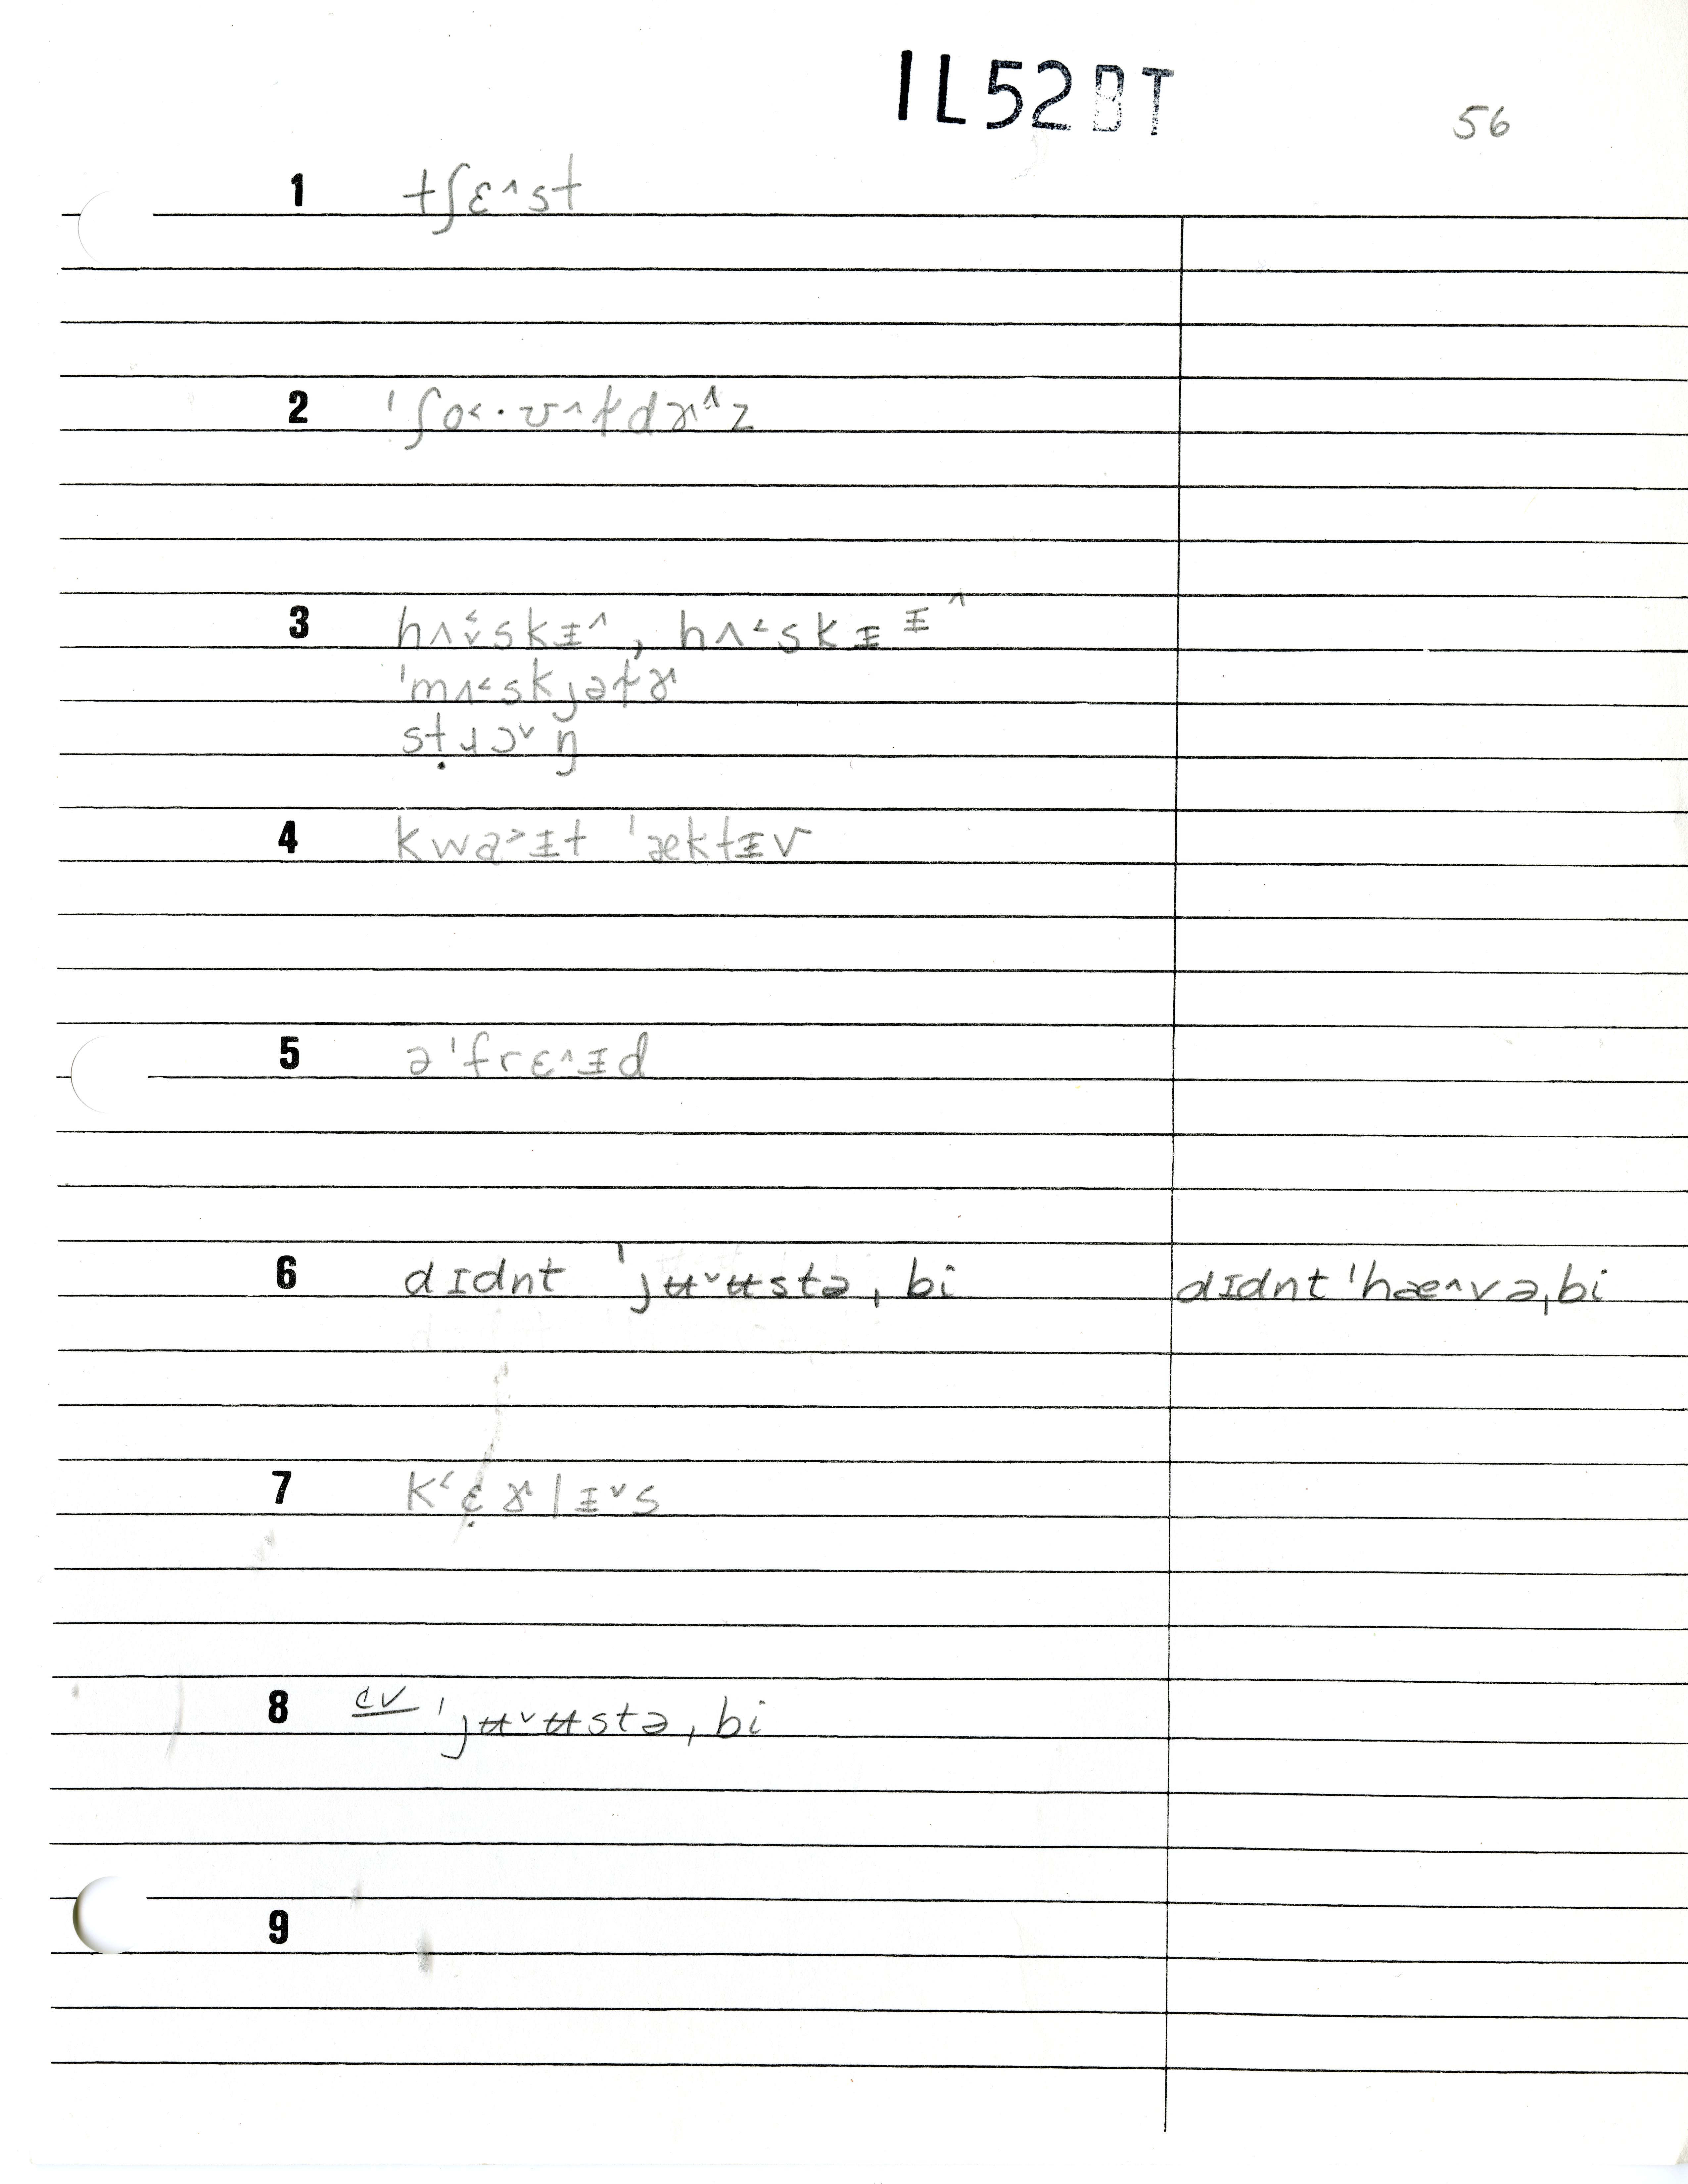 IL52BT
56
1 tʃɛ^st
2 ˈʃo˂·ʊ^t̬dɚ^z
3 hʌ˂̬skᵻ^, hʌ˂skᵻᵻ^
ˈmʌ˂skjət̬ɚ
sṭɹɔˇŋ
4 kwɑ˃ᵻt ˈæktᵻv
5 əˈfrɛ^ᵻd
6 dɪdnt ˈjʉˇʉstəˌbi didnt ˈhæ^vəˌbi
7 k˂ɛ̣ɚlᵻˇs
8 cv ˈjʉˇʉstəˌbi
9